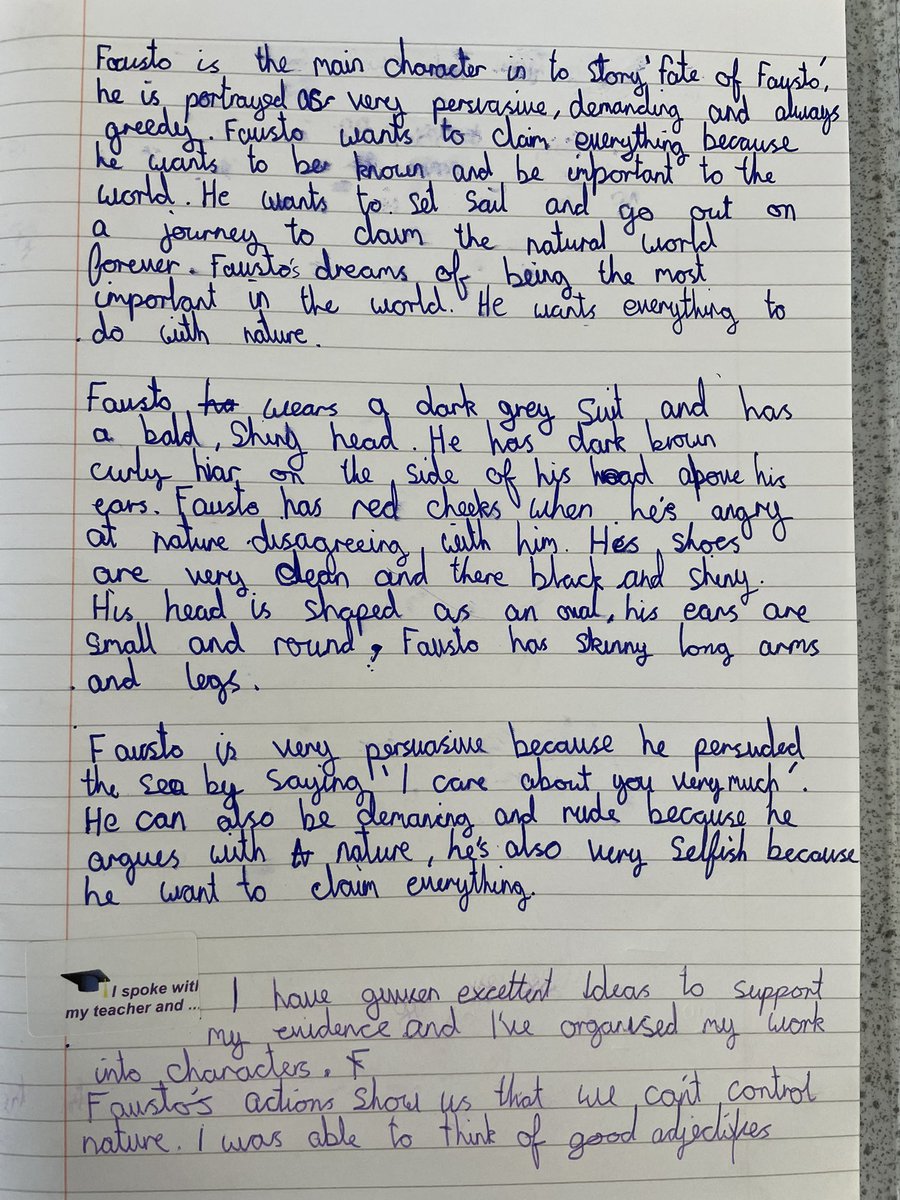 Fausto is the main character in to story 'fate of Fausto',
he is portrayed as very persvasive, demanding and always
greedy. Fausto wants to claim everything because
he wants to be known and be important to the
world. He wants to set sail and go out on
a journey to claim the natural world
forever. Fausto's dreams of being the most
important in the world. He wants everything to
do with nature.
Fausto wears a dark grey suit and has
a bald, shiny head. He has dark brown
curly hiar on the side of his head above his
ears. Fausto has red cheeks when he's angry
at nature disagreeing with him. His shoes
are very clean and there black and shiny.
His head is shaped as an oval, his ears are
small and round, Fausto has skinny long arms
and legs.
Fausto is very persuasive because he persuded
the sea by saying 'I care about you very much'.
He can also be demaning and rude because he
argues with nature, he's also very selfish because
he want to claim everything.
I spoke with
my teacher and ...
I have excellent Ideas to support
my evidence and I've organised my work
into characters.
Fausto's actions show us that we can't control
nature. I was able to think of good adjectives